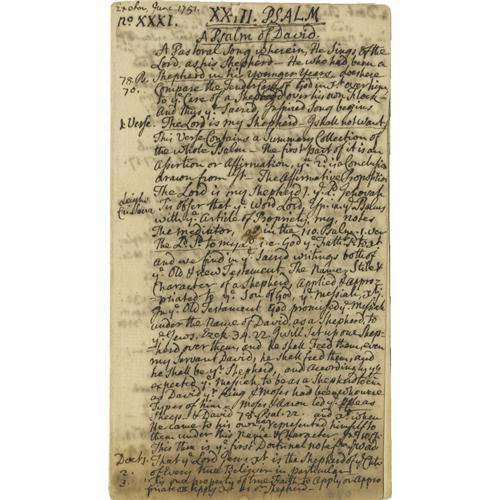 June 1751.
No XXXI.
XXIII. PSALM
A Psalm of David.
A Pastoral Song wherein, He Sings of the
Lord, as his Shepherd - He who had been a
78. Ps. Shepherd in his Younger Years, does here
70. Compare the Tenderness of God in over him
to ye Care of a Shepherd over his own Flock
And thus ye Sacred Inspired Song begins
1 Verse. The Lord is my Shepherd - I shall not want
This Verse Contains a Summary Collection of
the whole Psalm - The first part of it is an
Assertion or Affirmation, ye 2: is Conclusion
drawn from it - The Affirmative Proposition
The Lord is my Shepherd, Jehovah
Tis Oft ye Word Lord, Psalms
with ye Article of Propriety, my, notes
The Mediator, in the 110. Psalm-1. ver
The Ld. Sd. to my Ld. i.e. God ye Fathr to Xt
And we find in ye Sacred writings both of
ye Old & new Testament, The Name, Stile &
Character of a Shepherd, Applied & Appro-
priated to ye Son of God, ye Messiah,
In ye Old Testament God promised ye Messiah
under the Name of David, as a Shepherd, to
ye Jews, Ezek. 34. 22. I will Set up one Shep-
herd over them, and he shall Feed them, even
my Servant David, he shall feed them, and
he shall be ye Shepherd, and Accordingly ye
expected ye Messiah to be as a Shepherd
as David ye King & Moses had been, who were
Types of him - Moses & Aaron led ye as
sheep & David 78. Psal. 72. and when
He came to his own he represented himself to
them under this Name & Character
This then is ye first Doctrinal note
Doct. That ye Lord Jesus Xt is the Shepherd of ye
2. of Every true Believer in particular
3. Tis one property of true Faith to Apply or Appro-
priate Xt as a Shepherd